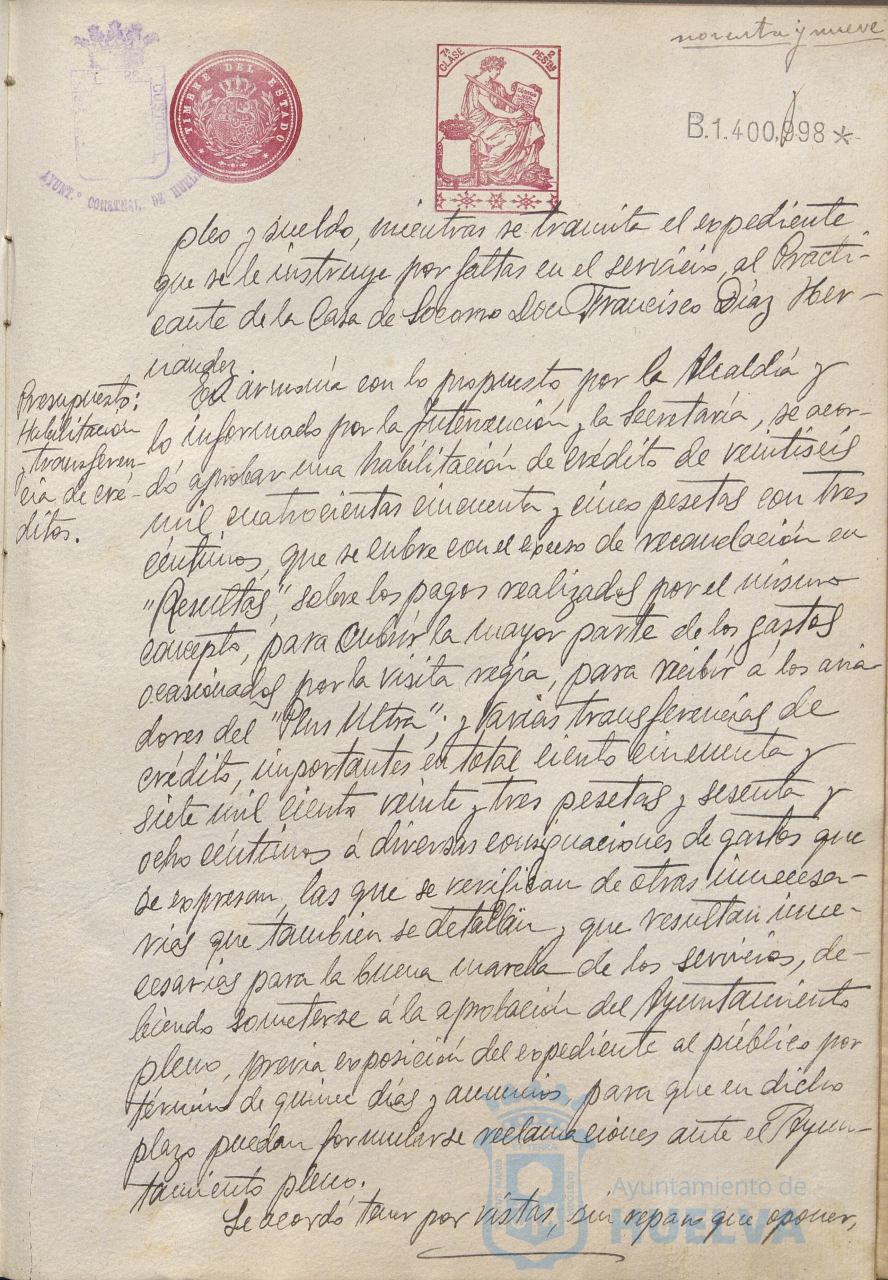 noventa y nueve
TIMBRE DEL ESTADO
7ª CLASE
2 PESETAS
B.1.400.998*
AYUNT.º CONSTNAL. DE HUELVA
pleo y sueldo, mientras se tramita el expediente
que se le instruye por faltas en el servicio, al Practi-
cante de la Casa de Socorro Don Francisco Díaz Her-
nández.
Presupuesto:
Habilitación
y transferen-
cia de cré-
ditos.
En armonía con lo propuesto, por la Alcaldía y
lo informado por la Intervención y la Secretaría, se acor-
dó aprobar una habilitación de crédito de veintiseis
mil cuatrocientas cincuenta y cinco pesetas con tres
céntimos, que se cubre con el exceso de recaudación en
"Resultas", sobre los pagos realizados por el mismo
concepto, para cubrir la mayor parte de los gastos
ocasionados por la visita regia, para recibir á los avia-
dores del "Plus Ultra"; y varias transferencias de
crédito, importantes en total ciento cincuenta y
siete mil ciento veinte y tres pesetas y sesenta y
ocho céntimos á diversas consignaciones de gastos que
se expresan, las que se verifican de otras innecesa-
rias que también se detallan y que resultan inne-
cesarias para la buena marcha de los servicios, de-
biendo someterse á la aprobación del Ayuntamiento
pleno, previa exposición del expediente al público por
término de quince días y anuncios para que en dicho
plazo puedan formularse reclamaciones ante el Ayun-
tamiento pleno.
Se acordó tener por vistas, sin reparo que oponer,
Ayuntamiento de
HUELVA